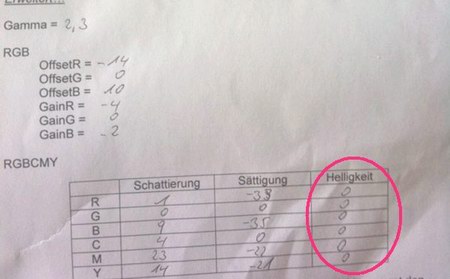 Gamma = 2,3
RGB
OffsetR = -14
OffsetG = 0
OffsetB = 10
GainR = -4
GainG = 0
GainB = -2
RGBCMY
Schattierung Sättigung Helligkeit
R 1 -38 0
G 0 0 0
B 9 -35 0
C 4 0 0
M 23 -22 0
Y 14 -21 0